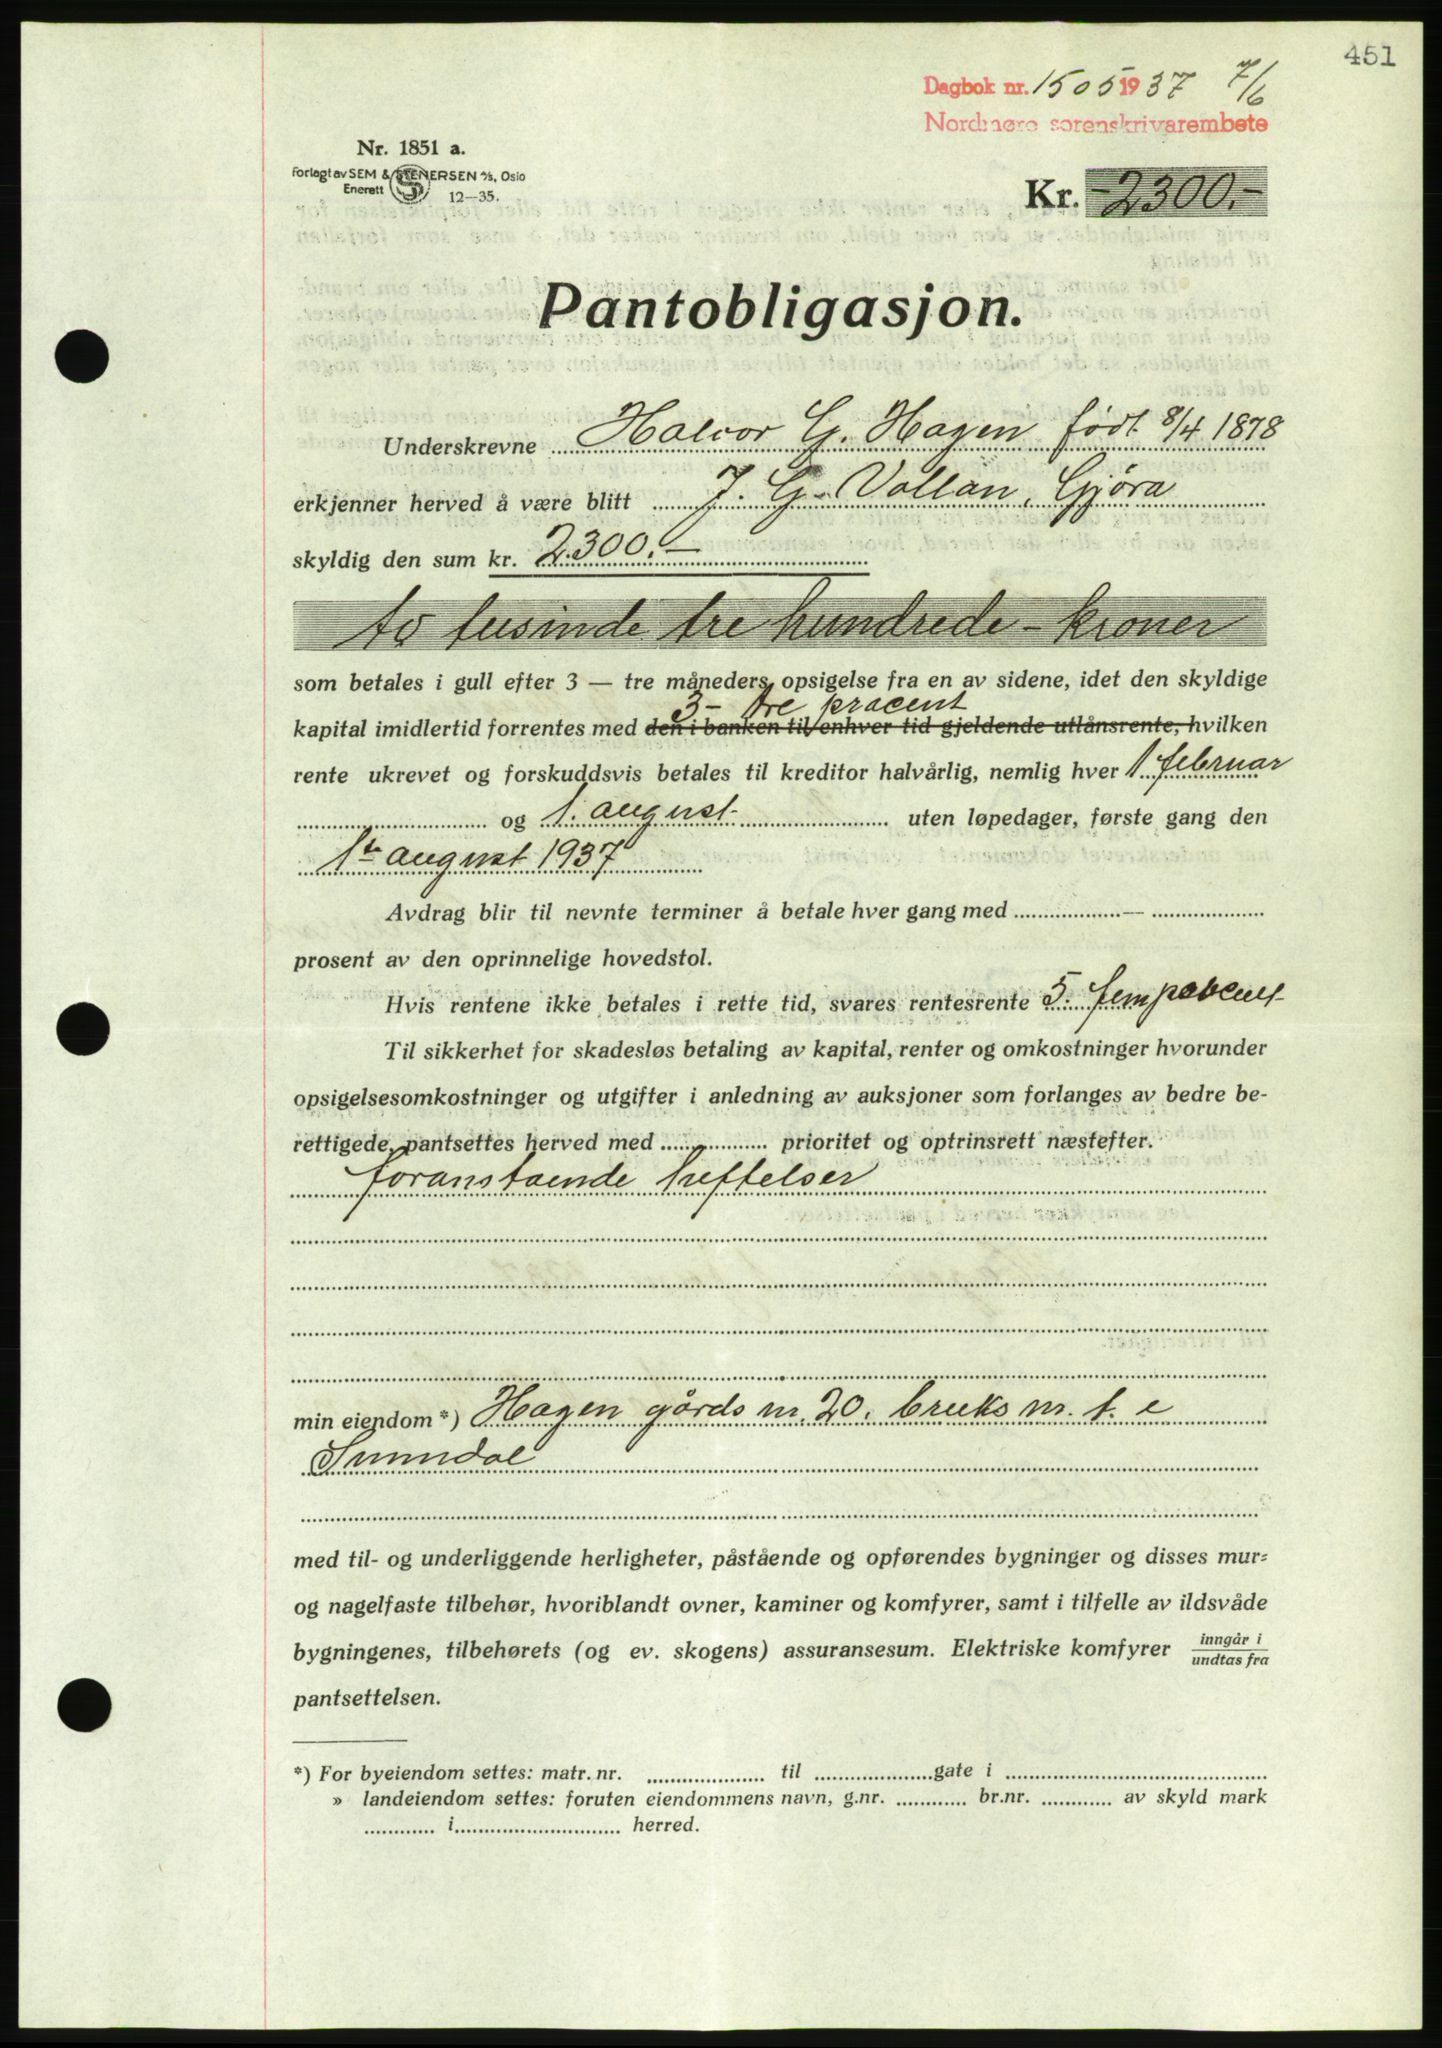 451
Dagbok nr. 1505 1937 7/6
Nordmøre sorenskrivarembete
Nr. 1851 a.
Forlagt av SEM & STENERSEN A/S, Oslo
Enerett
12—35.
Kr. -2300.-
Pantobligasjon.
Underskrevne Halvor G. Hagen født 8/4 1878
erkjenner herved å være blitt J. G. Vollan, Gjøra
skyldig den sum kr. 2.300.—
to tusinde tre hundrede - kroner
som betales i gull efter 3 — tre måneders opsigelse fra en av sidene, idet den skyldige
3- tre procent
kapital imidlertid forrentes med den i banken til enhver tid gjeldende utlånsrente, hvilken
rente ukrevet og forskuddsvis betales til kreditor halvårlig, nemlig hver 1 februar
og 1. august uten løpedager, første gang den
1ste august 1937
Avdrag blir til nevnte terminer å betale hver gang med —
prosent av den oprinnelige hovedstol.
Hvis rentene ikke betales i rette tid, svares rentesrente 5. fem
Til sikkerhet for skadesløs betaling av kapital, renter og omkostninger hvorunder
opsigelsesomkostninger og utgifter i anledning av auksjoner som forlanges av bedre be-
rettigede, pantsettes herved med prioritet og optrinsrett næstefter.
foranstaende heftelser
min eiendom *) Hagen gårds nr. 20. bruks nr. 1. i
Sunndal
med til- og underliggende herligheter, påstående og opførendes bygninger og disses mur-
og nagelfaste tilbehør, hvoriblandt ovner, kaminer og komfyrer, samt i tilfelle av ildsvåde
bygningenes, tilbehørets (og ev. skogens) assuransesum. Elektriske komfyrer inngår i
undtas fra
pantsettelsen.
*) For byeiendom settes: matr. nr. til gate i
» landeiendom settes: foruten eiendommens navn, g.nr. br.nr. av skyld mark
i herred.